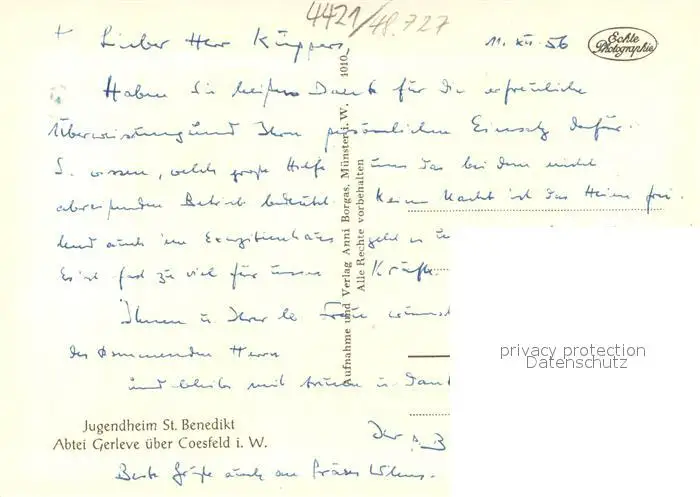 4421/48.727
+ Lieber Herr Küppers, 11. XII. 56
Echte Photographie
Haben Sie heißen Dank für die erfreuliche
Überweisung und Ihren persönlichen Einsatz dafür.
S. wissen, welch große Hilfe uns das bei dem nicht
abreißenden Betrieb bedeutet. Keine Nacht ist das Heim frei.
und auch im Exerzitienhaus geht es
Es ist fast zu viel für unsere Kräfte.
Ihnen u. Ihrer lb. Frau
des kommenden Herrn
und bleibe mit u. Dank
Ihr
Beste Grüße auch an Präses
Aufnahme und Verlag Anni Borgas, Münster i. W. 4010
Alle Rechte vorbehalten
privacy protection
Datenschutz
Jugendheim St. Benedikt
Abtei Gerleve über Coesfeld i. W.